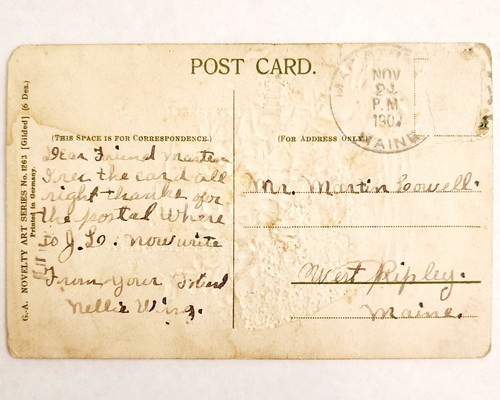 POST CARD.
NOV
P.M
190
MAINE
(THIS SPACE IS FOR CORRESPONDENCE.)
(FOR ADDRESS ONLY.)
Dear Friend Martin
I rec the card all
right thanks for
the postal Where
is J.L. now write
From Your Friend
Nellie Wing.
Mr. Martin Lowell.
West Ripley.
Maine.
G.-A. NOVELTY ART SERIES No. 1263 [Gilded] (6 Des.)
Printed in Germany.